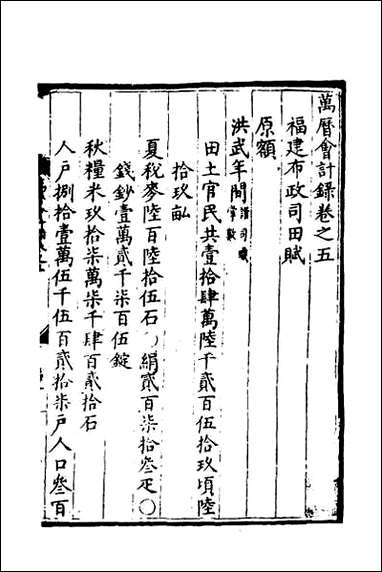 萬曆會計録卷之五
福建布政司田賦
原額
洪武年間諸司職掌數
田土官民共壹拾肆萬陸千貳百伍拾玖頃陸
拾玖畝
夏税麥陸百陸拾伍石〇絹貳百柒拾叁疋〇
錢鈔壹萬貳千柒百伍錠
秋糧米玖拾柒萬柒千肆百貳拾石
人户捌拾壹萬伍千伍百貳拾柒户人口叁百